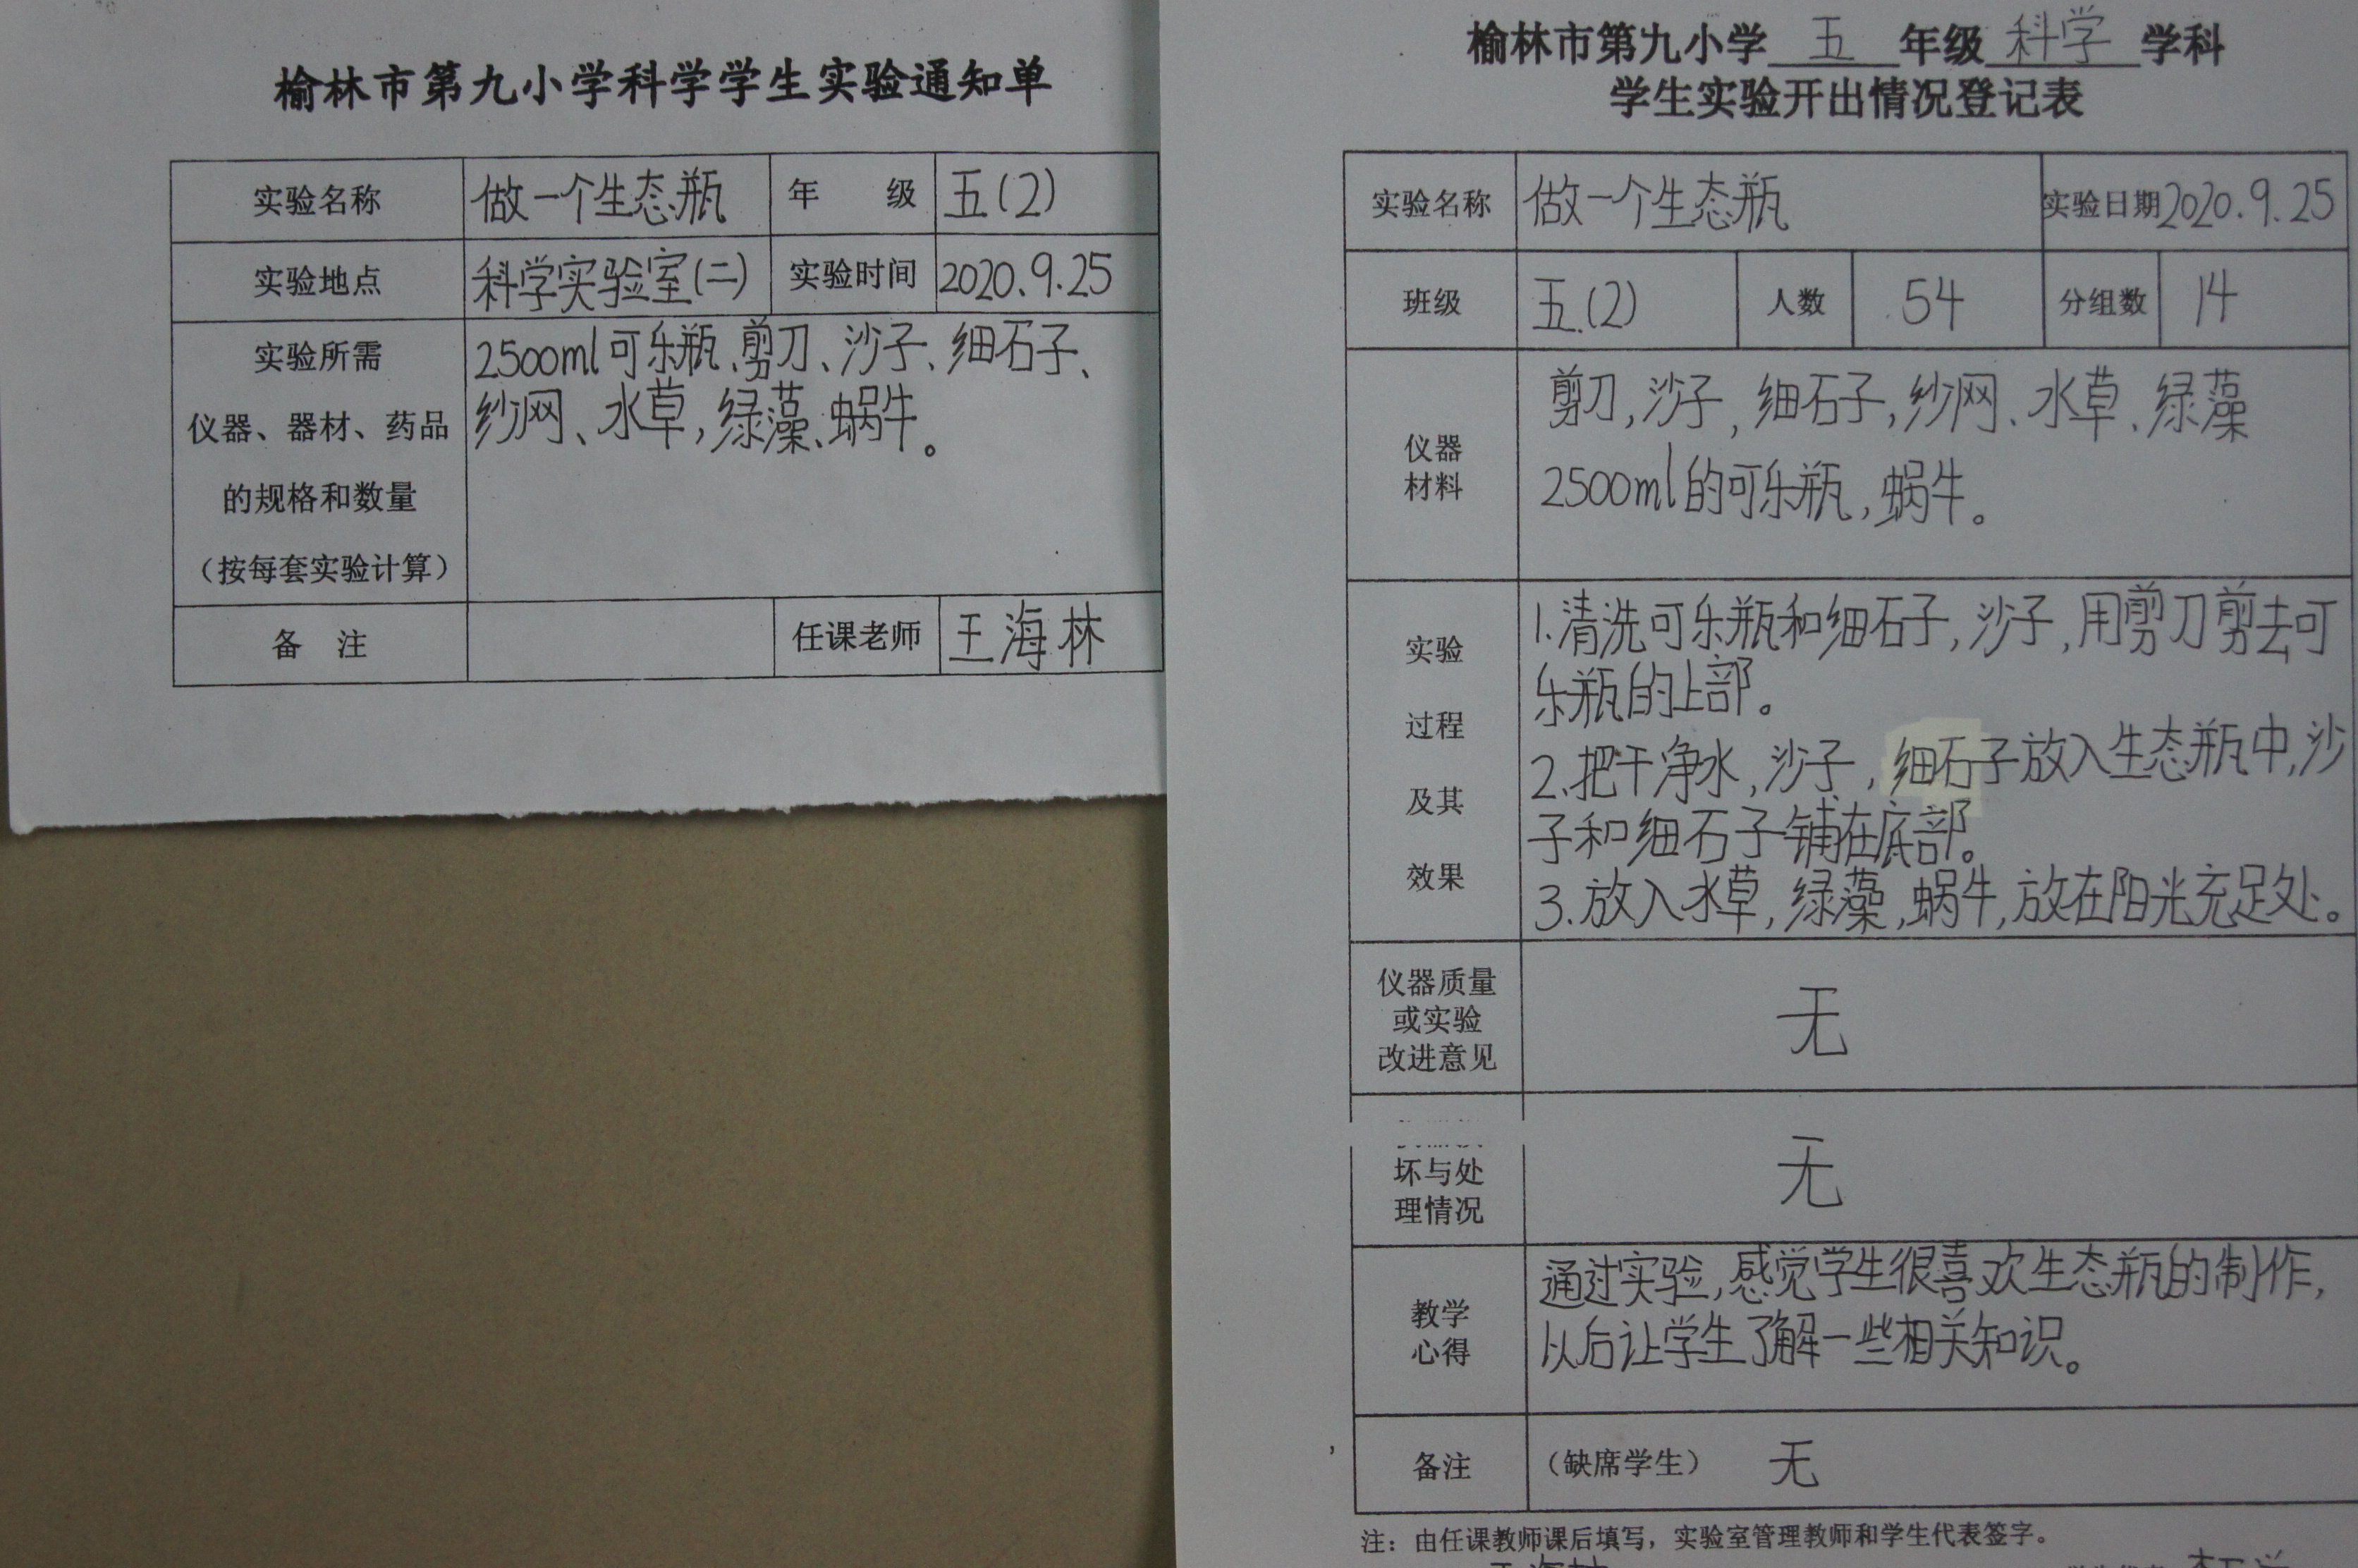 榆林市第九小学科学学生实验通知单
实验名称 做一个生态瓶 年 级 五(2)
实验地点 科学实验室(二) 实验时间 2020.9.25
实验所需
仪器、器材、药品
的规格和数量
（按每套实验计算）
2500ml可乐瓶、剪刀、沙子、细石子、
纱网、水草,绿藻、蜗牛。
备 注 任课老师 王海林
榆林市第九小学 五 年级 科学 学科
学生实验开出情况登记表
实验名称 做一个生态瓶 实验日期 2020.9.25
班级 五.(2) 人数 54 分组数 14
仪器
材料
剪刀,沙子,细石子,纱网、水草、绿藻
2500ml的可乐瓶,蜗牛。
实验
过程
及其
效果
1.清洗可乐瓶和细石子,沙子,用剪刀剪去可
乐瓶的上部。
2.把干净水,沙子,细石子放入生态瓶中,沙
子和细石子铺在底部。
3.放入水草,绿藻,蜗牛,放在阳光充足处。
仪器质量
或实验
改进意见
无
坏与处
理情况
无
教学
心得
通过实验,感觉学生很喜欢生态瓶的制作,
以后让学生了解一些相关知识。
备注 （缺席学生） 无
注：由任课教师课后填写，实验室管理教师和学生代表签字。